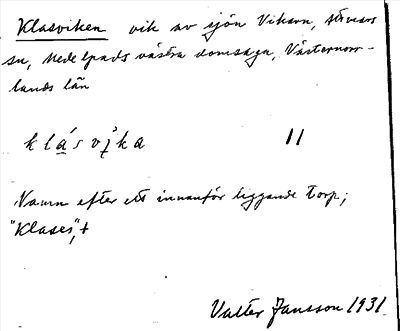 Klasviken vik av sjön Vikarn, Stavars
sn, Medelpads västra domsaga, Västernorr-
lands län
klásvi̯ka 11
Namn efter ett innanför liggande torp;
"Klases", +
Valter Jansson 1931